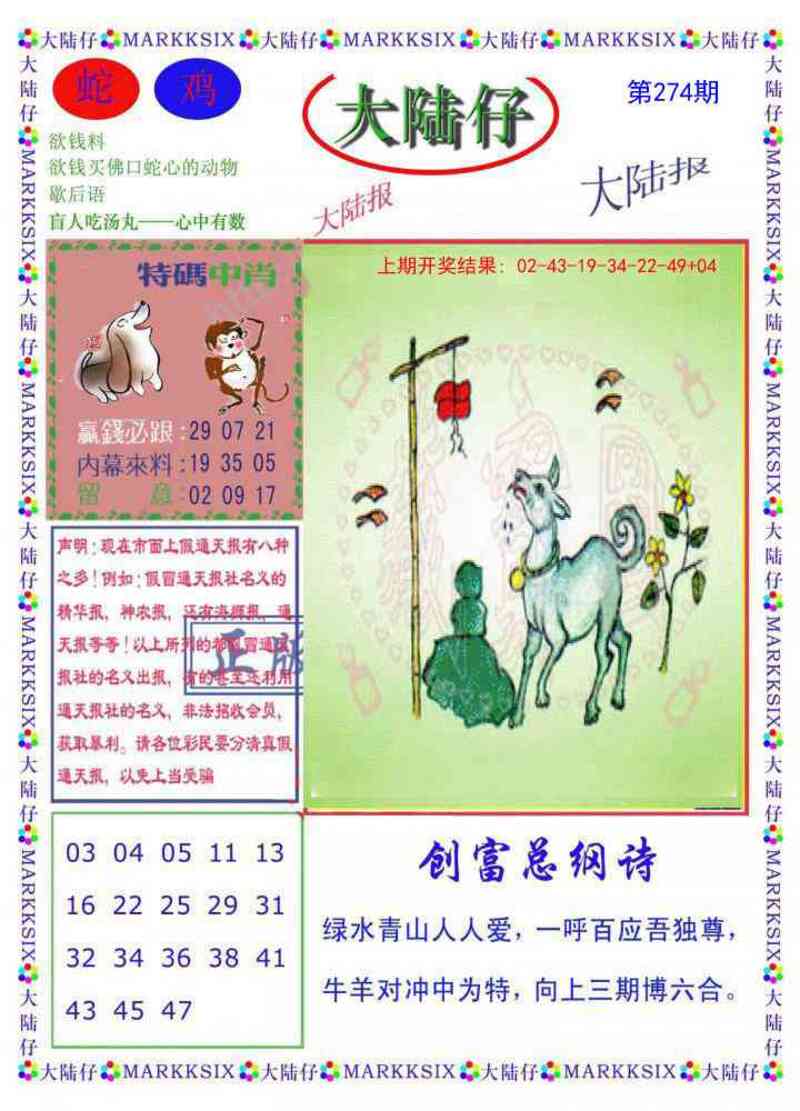 大陆仔 MARKKSIX 大陆仔 MARKKSIX 大陆仔 MARKKSIX 大陆仔
蛇 鸡
大陆仔
第274期
欲钱料
欲钱买佛口蛇心的动物
歇后语
盲人吃汤丸——心中有数
大陆报
大陆报
特碼中肖
赢錢必跟:29 07 21
内幕來料:19 35 05
留 意:02 09 17
上期开奖结果：02-43-19-34-22-49+04
声明:现在市面上假通天报有八种
之多!例如:假冒通天报社名义的
精华报，神农报，还有海狮报，通
天报等等!以上所列的都假冒通天
报社的名义出报，有的甚至还利用
通天报社的名义，非法招收会员，
获取暴利。请各位彩民要分清真假
通天报，以免上当受骗
正版
03 04 05 11 13
16 22 25 29 31
32 34 36 38 41
43 45 47
创富总纲诗
绿水青山人人爱，一呼百应吾独尊，
牛羊对冲中为特，向上三期博六合。
大陆仔 MARKKSIX 大陆仔 MARKKSIX 大陆仔 MARKKSIX 大陆仔
大陆仔 MARKKSIX 大陆仔 MARKKSIX 大陆仔 MARKKSIX 大陆仔 MARKKSIX 大陆仔
大陆仔 MARKKSIX 大陆仔 MARKKSIX 大陆仔 MARKKSIX 大陆仔 MARKKSIX 大陆仔